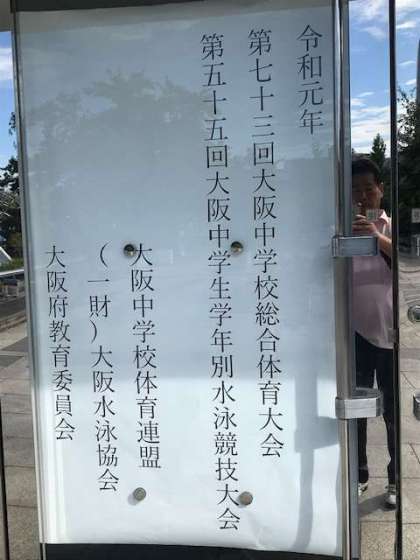 令和元年
第七十三回大阪中学校総合体育大会
第五十五回大阪中学生学年別水泳競技大会
大阪中学校体育連盟
(一財)大阪水泳協会
大阪府教育委員会